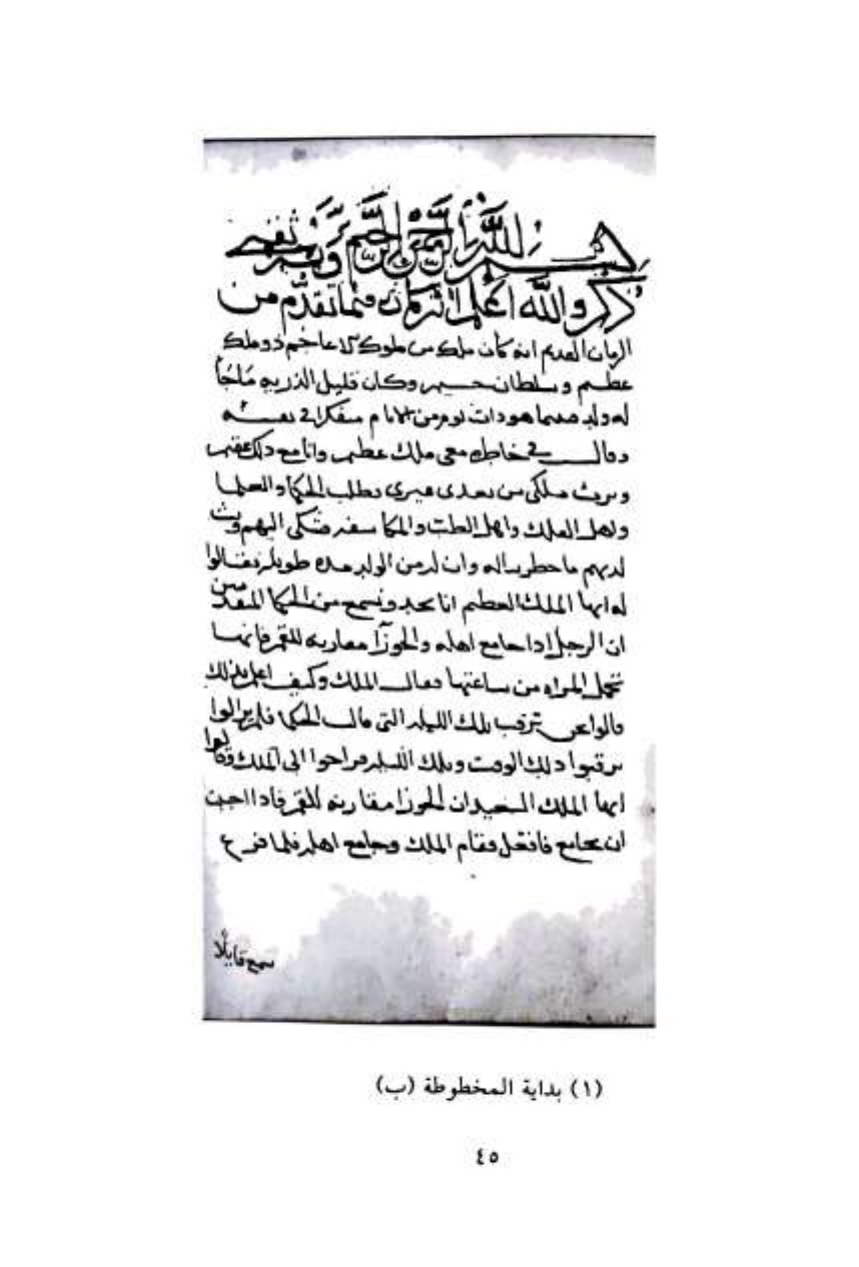 بسم الله الرحمن الرحيم وبه ثقتي
ذكر والله اعلم انه كان فيما تقدم من
الزمان القديم انه كان ملك من ملوك الاعاجم ذو ملك
عظيم وسلطان جسيم وكان قليل الذرية ما جا
له ولد فبينما هو ذات يوم من الايام متفكرا في نفسه
وقال في خاطره معي ملك عظيم وانا مع ذلك عقيم
ويرث ملكي من بعدي غيري فطلب الحكما والعلما
واهل الفلك واهل الطب فشكى اليهم وبث
لديهم ما خطر بباله وان له من الولد مدة طويلة فقالوا
له ايها الملك العظيم انا نجد ونسمع من الحكما المتقدمين
ان الرجل اذا جامع اهله والجوزا مقاربه للقمر فانها
تحمل المراه من ساعتها فقال الملك وكيف اعلم بذلك
قالوا نحن نترقب تلك الليله التي قالت الحكما فلم يزالوا
يرقبوا ذلك الوقت وتلك الليله فراحوا الى الملك وقالوا
ايها الملك السعيد ان الجوزا مقاربه للقمر فاذا احببت
ان تجامع فافعل فقام الملك وجامع اهله فلما فرغ
سمع قايلا
(١) بداية المخطوطة (ب)
٤٥